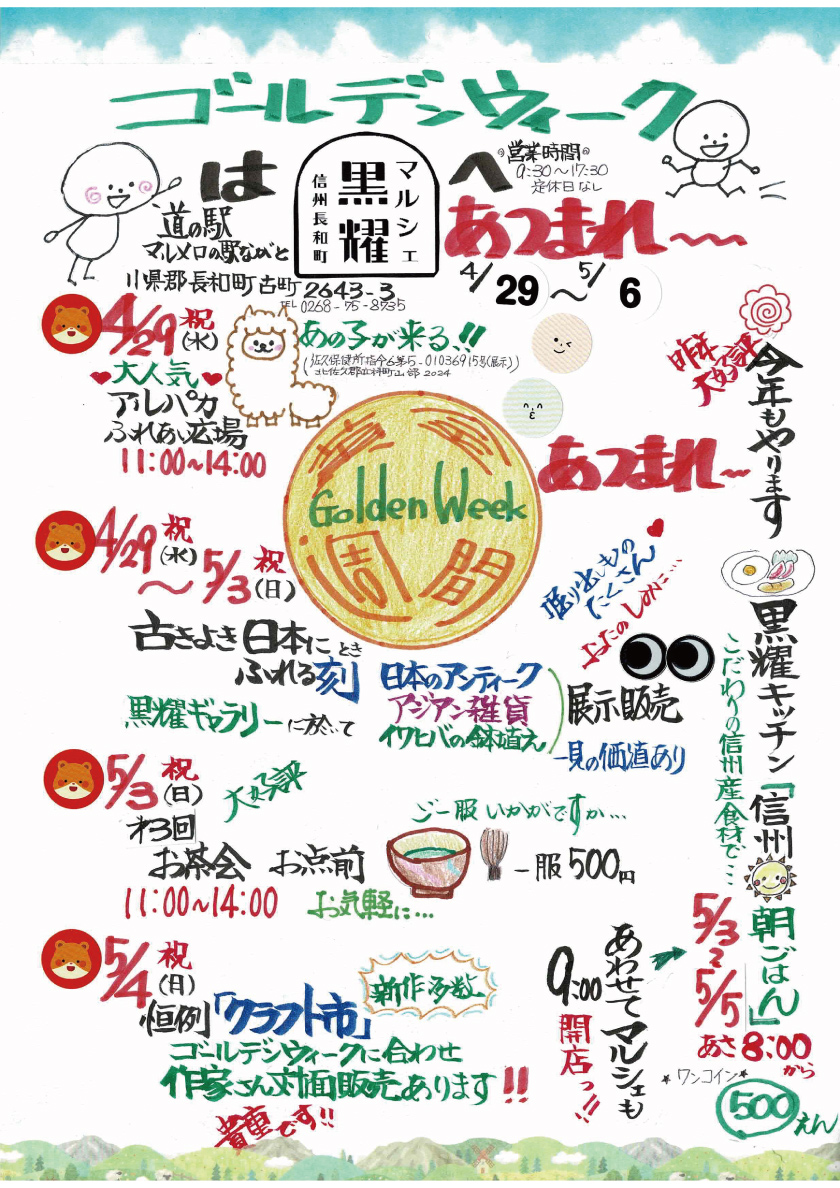 ゴールデンウィーク
は
マルシェ
黒耀
信州長和町
へ
営業時間
9:30〜17:30
定休日なし
道の駅
マルメロの駅ながと
小県郡長和町古町2643-3
TEL 0268-75-8735
あつまれ〜
4/29〜5/6
4/29祝(水)
あの子が来る!!
♥大人気♥
アルパカ
ふれあい広場
11:00〜14:00
昨年大好評
今年もやります
黄金
Golden Week
週間
あつまれ〜
4/29祝(水)〜5/3祝(日)
古きよき日本に
ふれる刻
とき
黒耀ギャラリーに於いて
日本のアンティーク
アジアン雑貨
イワヒバの鉢植え
展示販売
一見の価値あり
掘り出しもの
たくさん
おたのしみに…
黒耀キッチン「信州朝ごはん」
こだわりの信州産食材で…
5/3〜5/5
あさ8:00から
ワンコイン
500えん
5/3祝(日)
大好評
才3回
お茶会 お点前
ご一服いかがですか…
一服500円
11:00〜14:00
お気軽に…
5/4祝(月)
恒例「クラフト市」
新作多数
ゴールデンウィークに合わせ
作家さん対面販売あります!!
貴重です!!
あわせてマルシェも
9:00
開店っ!!